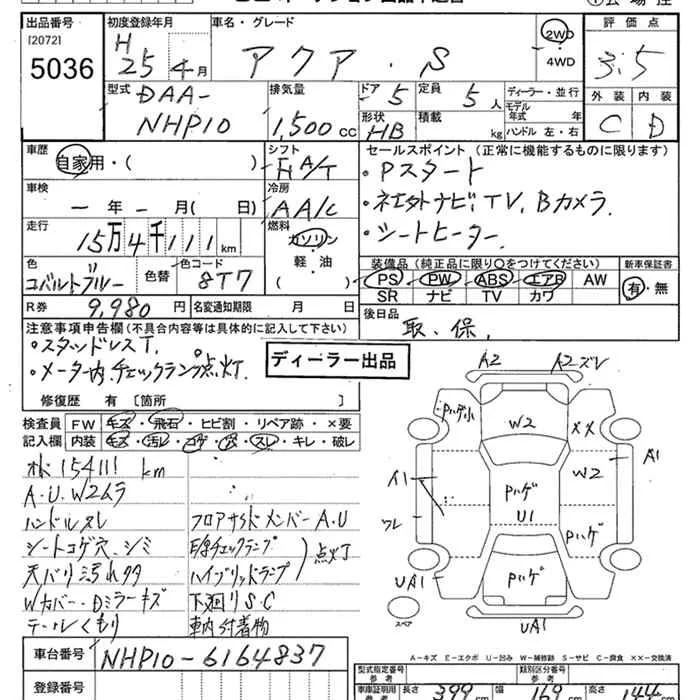 出品番号
[2072]
5036
初度登録年月
H
25年 4月
車名・グレード
アクア・S
2WD
4WD
評価点
3.5
外装
内装
C
D
型式
DAA-
NHP10
排気量
1,500cc
ドア
5
定員
5人
形状
HB
積載
kg
ディーラー・並行
モデル年式
年
ハンドル 左・右
車歴
自家用・( )
シフト
FA/T
セールスポイント (正常に機能するものに限ります)
・Pスタート
・社外ナビ, TV, Bカメラ.
・シートヒーター.
車検
ー年 ー月( 日)
冷房
AA/C
走行
15万4千111km
燃料
ガソリン
軽・油
( )
色
コバルトブルー
色替
色コード
8T7
装備品 (純正品に限り○をつけてください)
PS・PW・ABS・エアB・AW
SR・ナビ・TV・カワ
新車保証書
有・無
R券
9,980円
名変通知期限
月 日
後日品
取、保,
注意事項申告欄(不具合内容等は具体的に記入して下さい)
・スタッドレスT.
・メーター内,チェックランプ点灯.
ディーラー出品
修復歴 有 〔箇所
検査員
記入欄
FW
キズ・飛石・ヒビ割・リペア跡・×要
内装
キズ・汚レ・コゲ・穴・スレ・キレ・破レ
154111 km
A・U.W2ムラ
ハンドルスレ
シートコゲ穴、シミ
天バリ汚れタタ
Wカバー・Dミラーキズ
テールくもり
フロアサイドメンバーA.U
E/Gチェックランプ
ハイブリッドランプ
点灯
下廻りS.C
車内付着物
A2
A2ズレ
Pハゲ小
W2
××
A1
W2
A1
Pハゲ
U1
ワレ
Pハゲ
UA1
Pハゲ
UA1
スペア
車台番号
NHP10-6164837
登録番号
A-キズ E-エクボ U-凹み W-補修跡 S-サビ C-腐食 ××-交換済
型式指定番号
参考
類別区分番号
参考
車庫証明用
参考
長さ
399
cm
幅
169
cm
高さ
144
cm